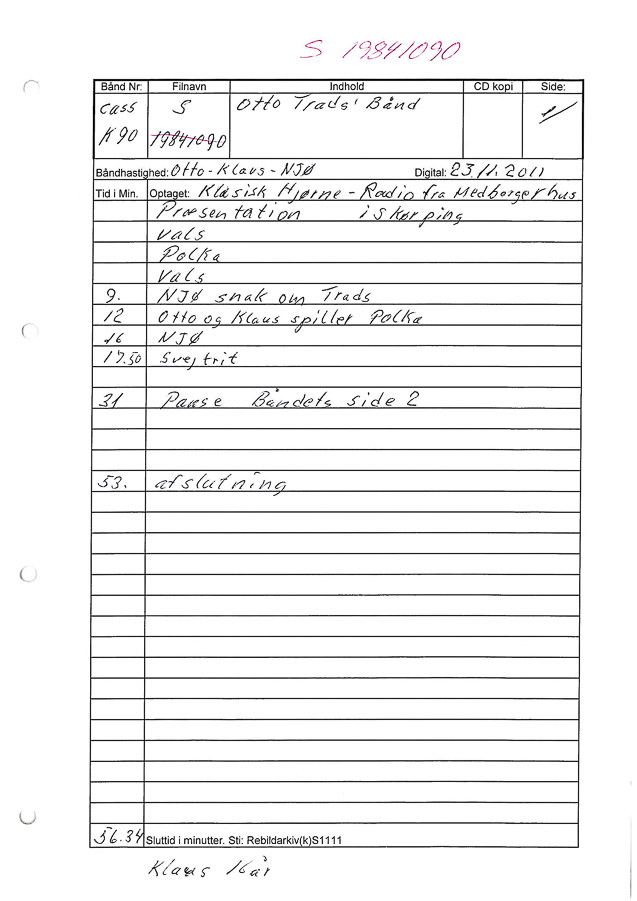 S 19841090
Bånd Nr: Filnavn Indhold CD kopi Side:
cass S Otto Trads' Bånd 1/
K90 19841090
Båndhastighed: Otto-Klaus-NJØ Digital: 23.11.2011
Tid i Min. Optaget: Klasisk Hjørne - Radio fra Medborgerhus
Præsentation i Skørping
Vals
Polka
Vals
9. NJØ snak om Trads
12 Otto og Klaus spiller Polka
16 NJØ
17.50 Svejtrit
31 Pause Båndets side 2
53. afslutning
56.34 Sluttid i minutter. Sti: Rebildarkiv(k)S1111
Klaus 16 år